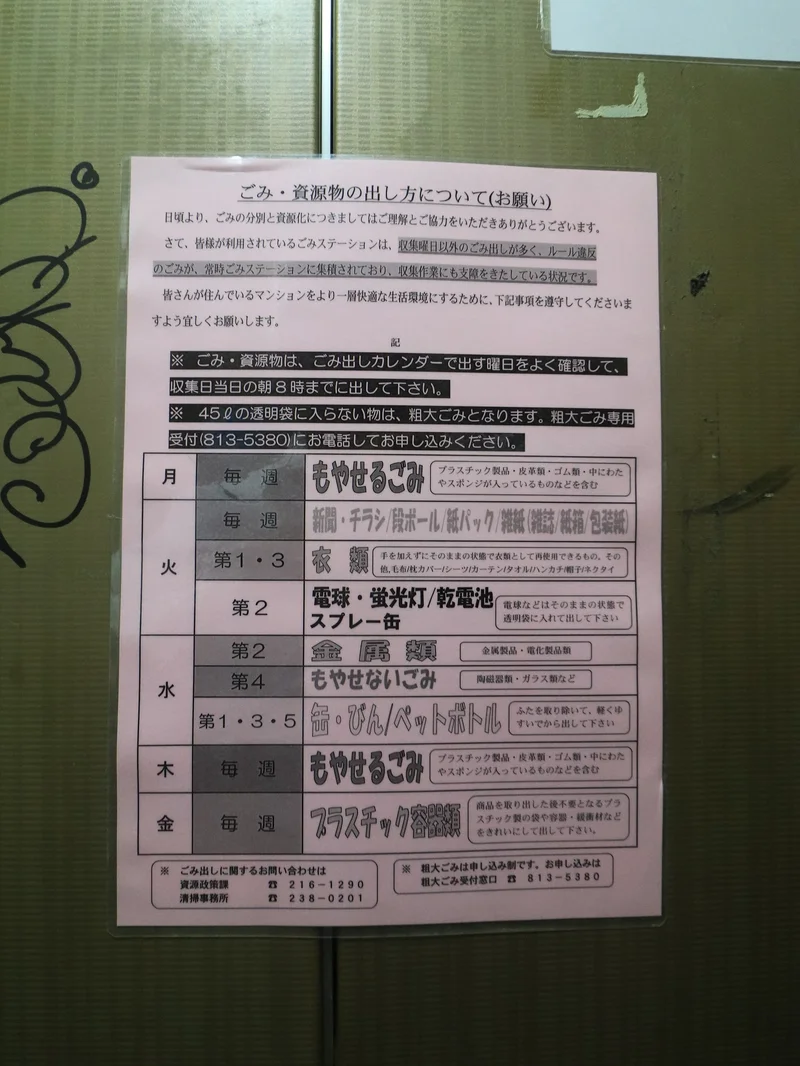 ごみ・資源物の出し方について(お願い)
日頃より、ごみの分別と資源化につきましてはご理解とご協力をいただきありがとうございます。
さて、皆様が利用されているごみステーションは、収集曜日以外のごみ出しが多く、ルール違反
のごみが、常時ごみステーションに集積されており、収集作業にも支障をきたしている状況です。
皆さんが住んでいるマンションをより一層快適な生活環境にするために、下記事項を遵守してくださいま
すよう宜しくお願いします。
記
※ ごみ・資源物は、ごみ出しカレンダーで出す曜日をよく確認して、
収集日当日の朝8時までに出して下さい。
※ 45ℓの透明袋に入らない物は、粗大ごみとなります。粗大ごみ専用
受付(813-5380)にお電話してお申し込みください。
月 毎週 もやせるごみ プラスチック製品・皮革類・ゴム類・中にわた
やスポンジが入っているものなどを含む
火 毎週 新聞・チラシ/段ボール/紙パック/雑紙(雑誌/紙箱/包装紙)
第1・3 衣類 手を加えずにそのままの状態で衣類として再使用できるもの。その
他,毛布/枕カバー/シーツ/カーテン/タオル/ハンカチ/帽子/ネクタイ
第2 電球・蛍光灯/乾電池
スプレー缶 電球などはそのままの状態で
透明袋に入れて出して下さい
水 第2 金属類 金属製品・電化製品類
第4 もやせないごみ 陶磁器類・ガラス類など
第1・3・5 缶・びん/ペットボトル ふたを取り除いて、軽くゆ
すいでから出して下さい
木 毎週 もやせるごみ プラスチック製品・皮革類・ゴム類・中にわた
やスポンジが入っているものなどを含む
金 毎週 プラスチック容器類 商品を取り出した後不要となるプラ
スチック製の袋や容器・緩衝材など
をきれいにして出して下さい。
※ ごみ出しに関するお問い合わせは
資源政策課 ☎ 216-1290
清掃事務所 ☎ 238-0201
※ 粗大ごみは申し込み制です。お申し込みは
粗大ごみ受付窓口 ☎ 813-5380